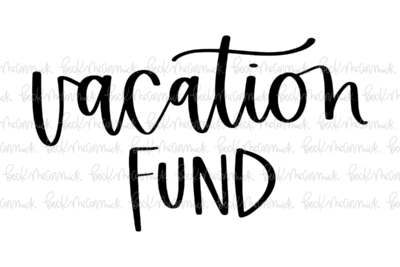 vacation
FUND